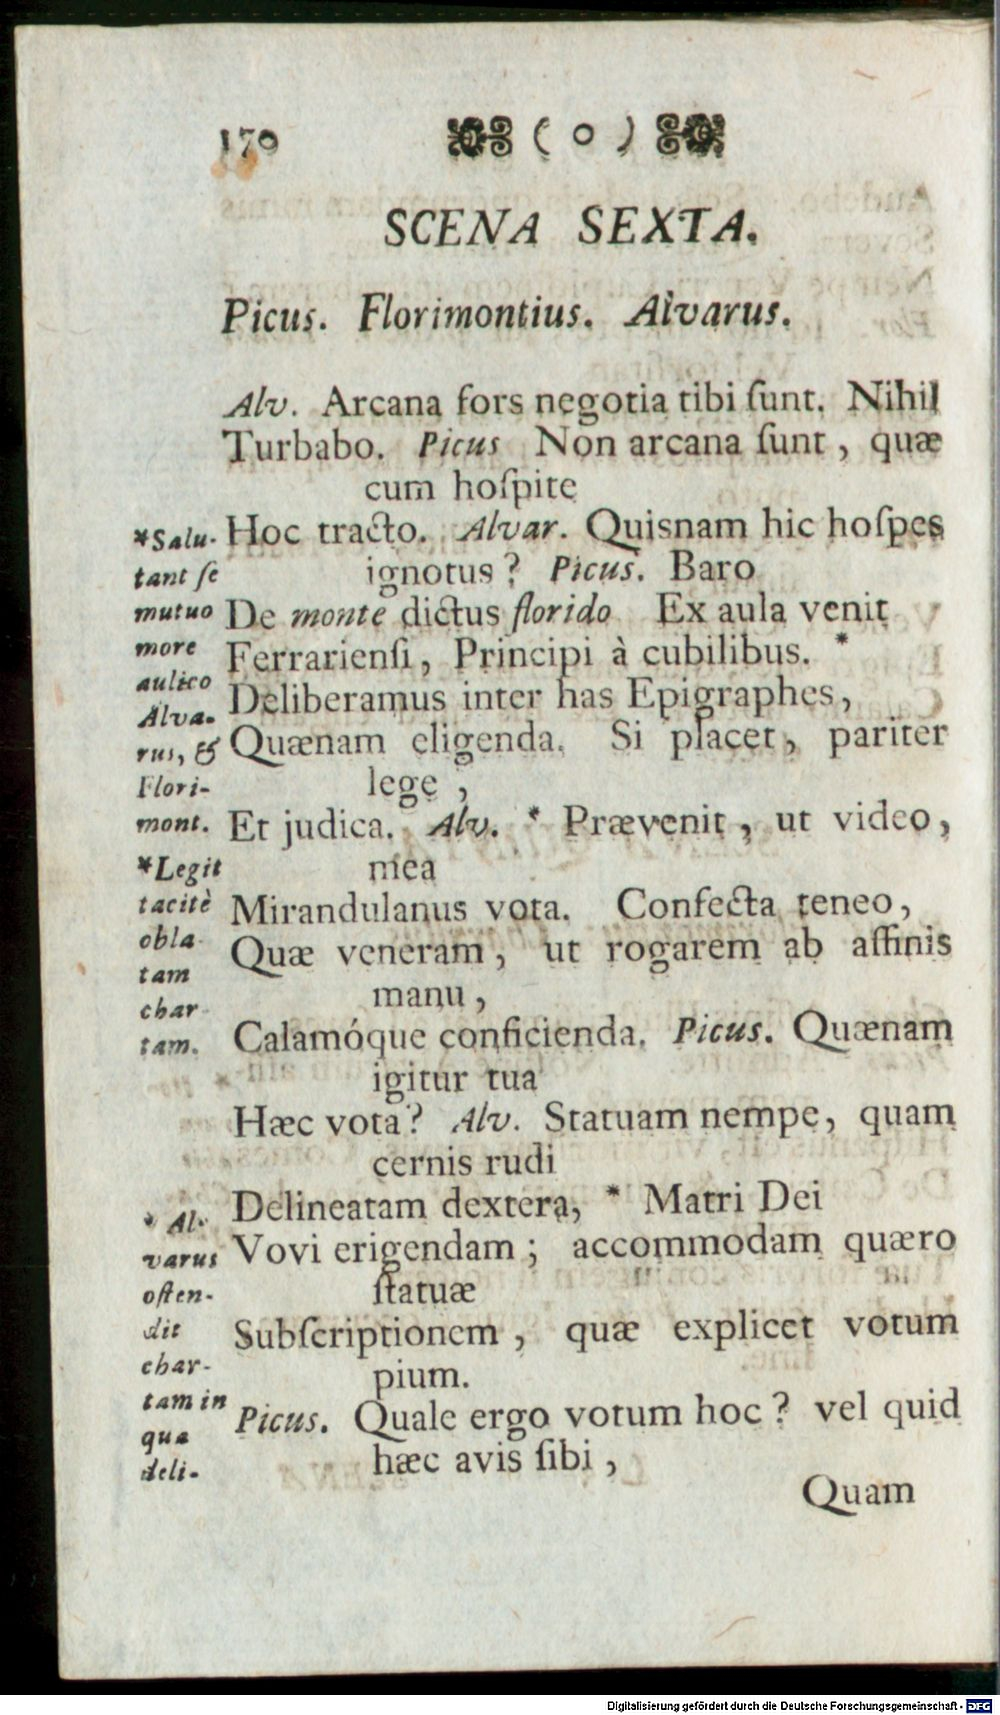 170 ( o )
SCENA SEXTA.
Picus. Florimontius. Alvarus.
Alv. Arcana fors negotia tibi ſunt. Nihil
Turbabo. Picus Non arcana ſunt, quæ
cum hoſpite
Hoc tracto. Alvar. Quisnam hic hoſpes
ignotus? Picus. Baro
De monte dictus florido Ex aula venit
Ferrarienſi, Principi à cubilibus. *
Deliberamus inter has Epigraphes,
Quænam eligenda. Si placet, pariter
lege,
Et judica. Alv. * Prævenit, ut video,
mea
Mirandulanus vota. Confecta teneo,
Quæ veneram, ut rogarem ab affinis
manu,
Calamóque conficienda. Picus. Quænam
igitur tua
Hæc vota? Alv. Statuam nempe, quam
cernis rudi
Delineatam dextera, * Matri Dei
Vovi erigendam; accommodam quæro
ſtatuæ
Subſcriptionem, quæ explicet votum
pium.
Picus. Quale ergo votum hoc? vel quid
hæc avis ſibi,
Quam
*Salu-
tant ſe
mutuo
more
aulico
Alva-
rus, &
Flori-
mont.
*Legit
tacitè
obla-
tam
char-
tam.
* Al-
varus
oſten-
dit
char-
tam in
qua
deli-
Digitalisierung gefördert durch die Deutsche Forschungsgemeinschaft - DFG